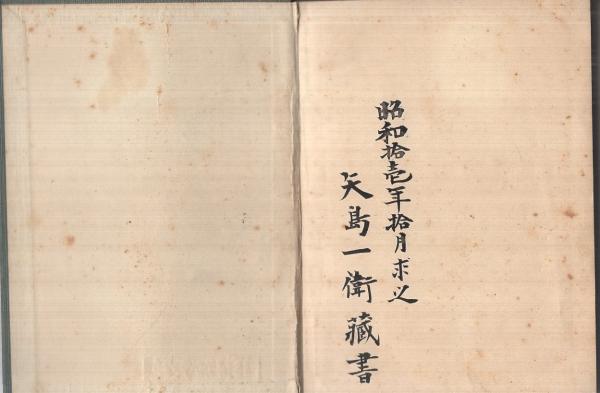 昭和拾壱年拾月求之
矢島一衛藏書